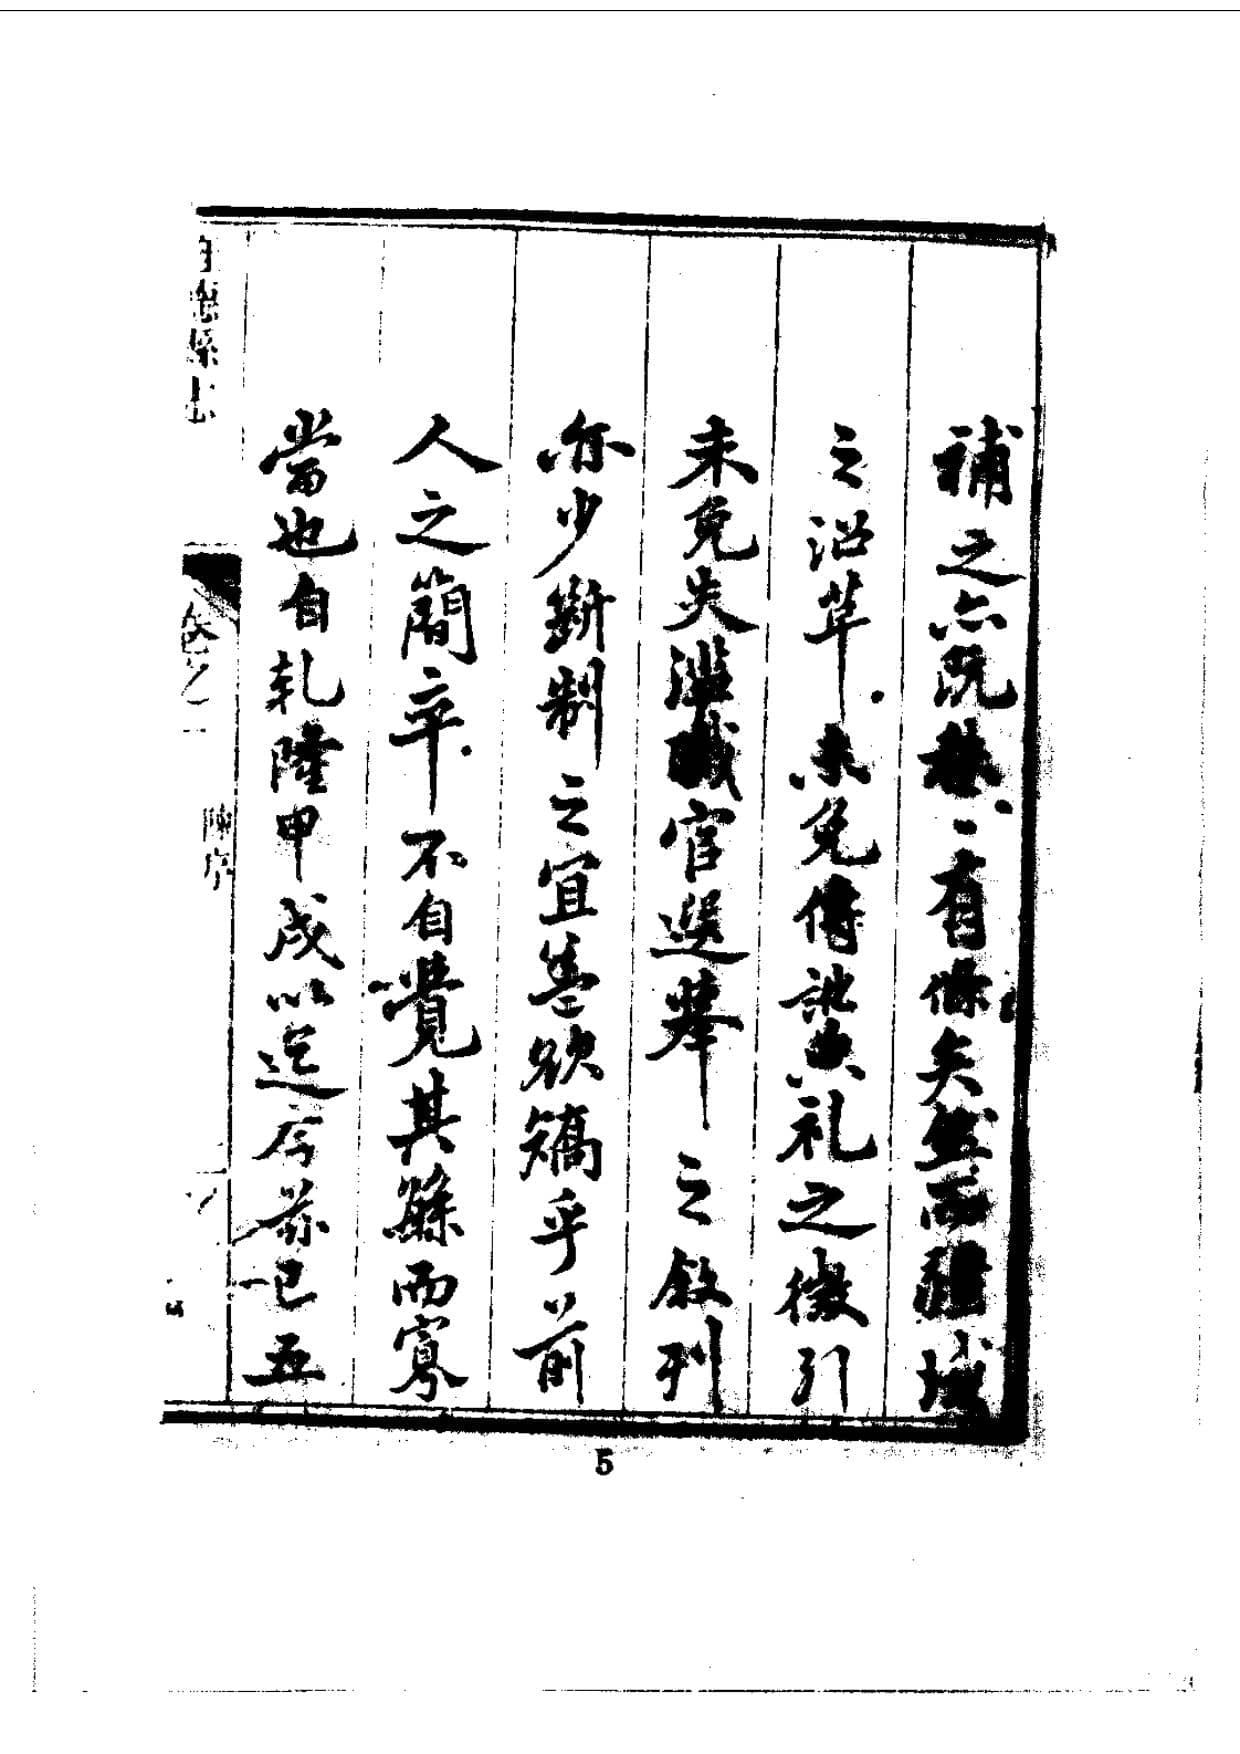 補之亦既秩〻有條矣然而疆域
之沿革未免傳訛典礼之徵引
未免失漏職官選舉之敘列
亦少斷制之宜盖欲矯乎前
人之簡率不自覺其繇而寡
當也自乹隆甲戌以迄今茲已五
卷之一
陳序
5